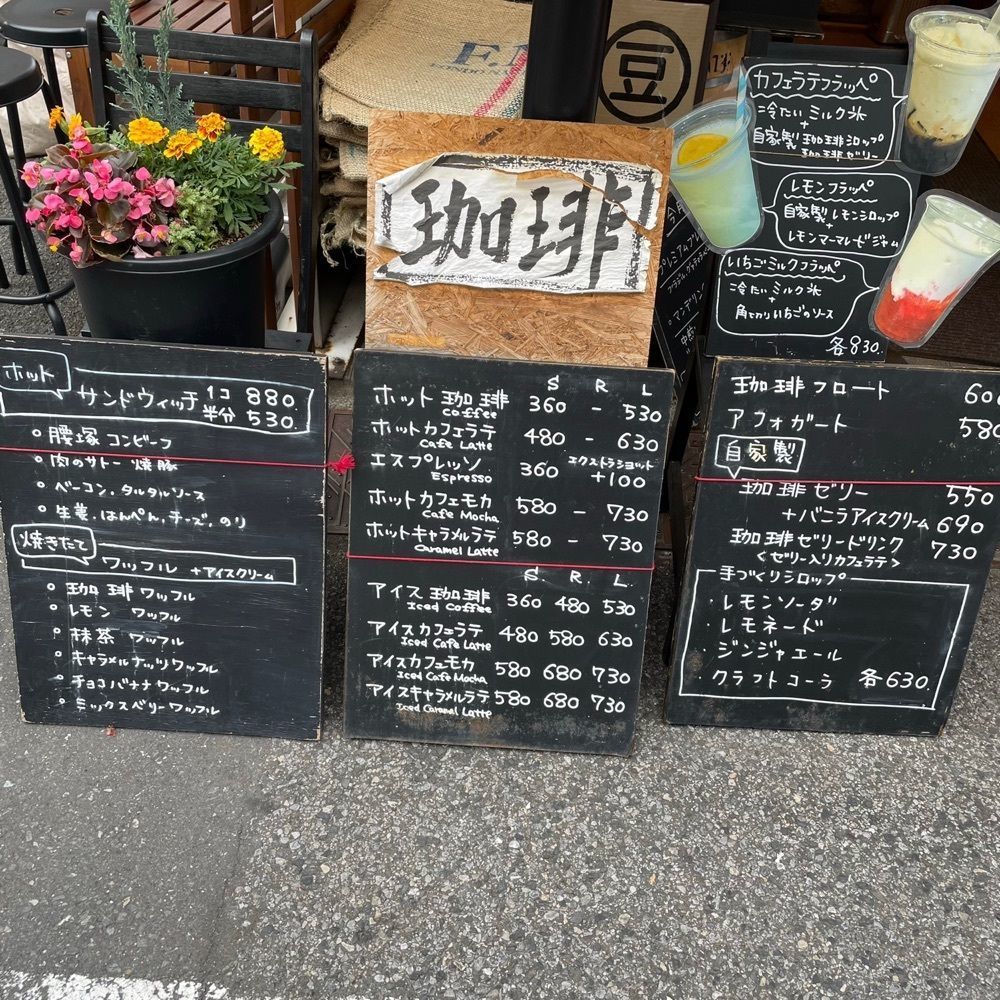 F.N
豆
珈琲
カフェラテフラッペ
冷たいミルク氷
+
自家製 珈琲シロップ
珈琲ゼリー
レモンフラッペ
自家製レモンシロップ
+
レモンマーマレードジャム
いちごミルクフラッペ
冷たいミルク氷
+
角切りいちごのソース
各830.
マンデリン
ホット
サンドウィッチ 1コ 880.
半分 530.
○ 腰塚 コンビーフ
○ 肉のサトー 焼豚
○ ベーコン、タルタルソース
○ 生姜、はんぺん、チーズ、のり
焼きたて
ワッフル +アイスクリーム
○ 珈琲ワッフル
○ レモン ワッフル
○ 抹茶 ワッフル
○ キャラメルナッツワッフル
○ チョコバナナワッフル
○ ミックスベリーワッフル
S R L
ホット 珈琲 360 - 530
Coffee
ホットカフェラテ 480 - 630
Cafe Latte
エスプレッソ 360 エクストラショット +100
Espresso
ホットカフェモカ 580 - 730
Cafe Mocha
ホットキャラメルラテ 580 - 730
Caramel Latte
S. R. L.
アイス 珈琲 360 480 530
Iced Coffee
アイスカフェラテ 480 580 630
Iced Cafe Latte
アイスカフェモカ 580 680 730
Iced Cafe Mocha
アイスキャラメルラテ 580 680 730
Iced Caramel Latte
珈琲フロート 600
アフォガート 580
自家製
珈琲ゼリー 550
+バニラアイスクリーム 690
珈琲ゼリードリンク 730
<ゼリー入りカフェラテ>
手づくりシロップ
レモンソーダ
レモネード
ジンジャエール
クラフトコーラ 各630.